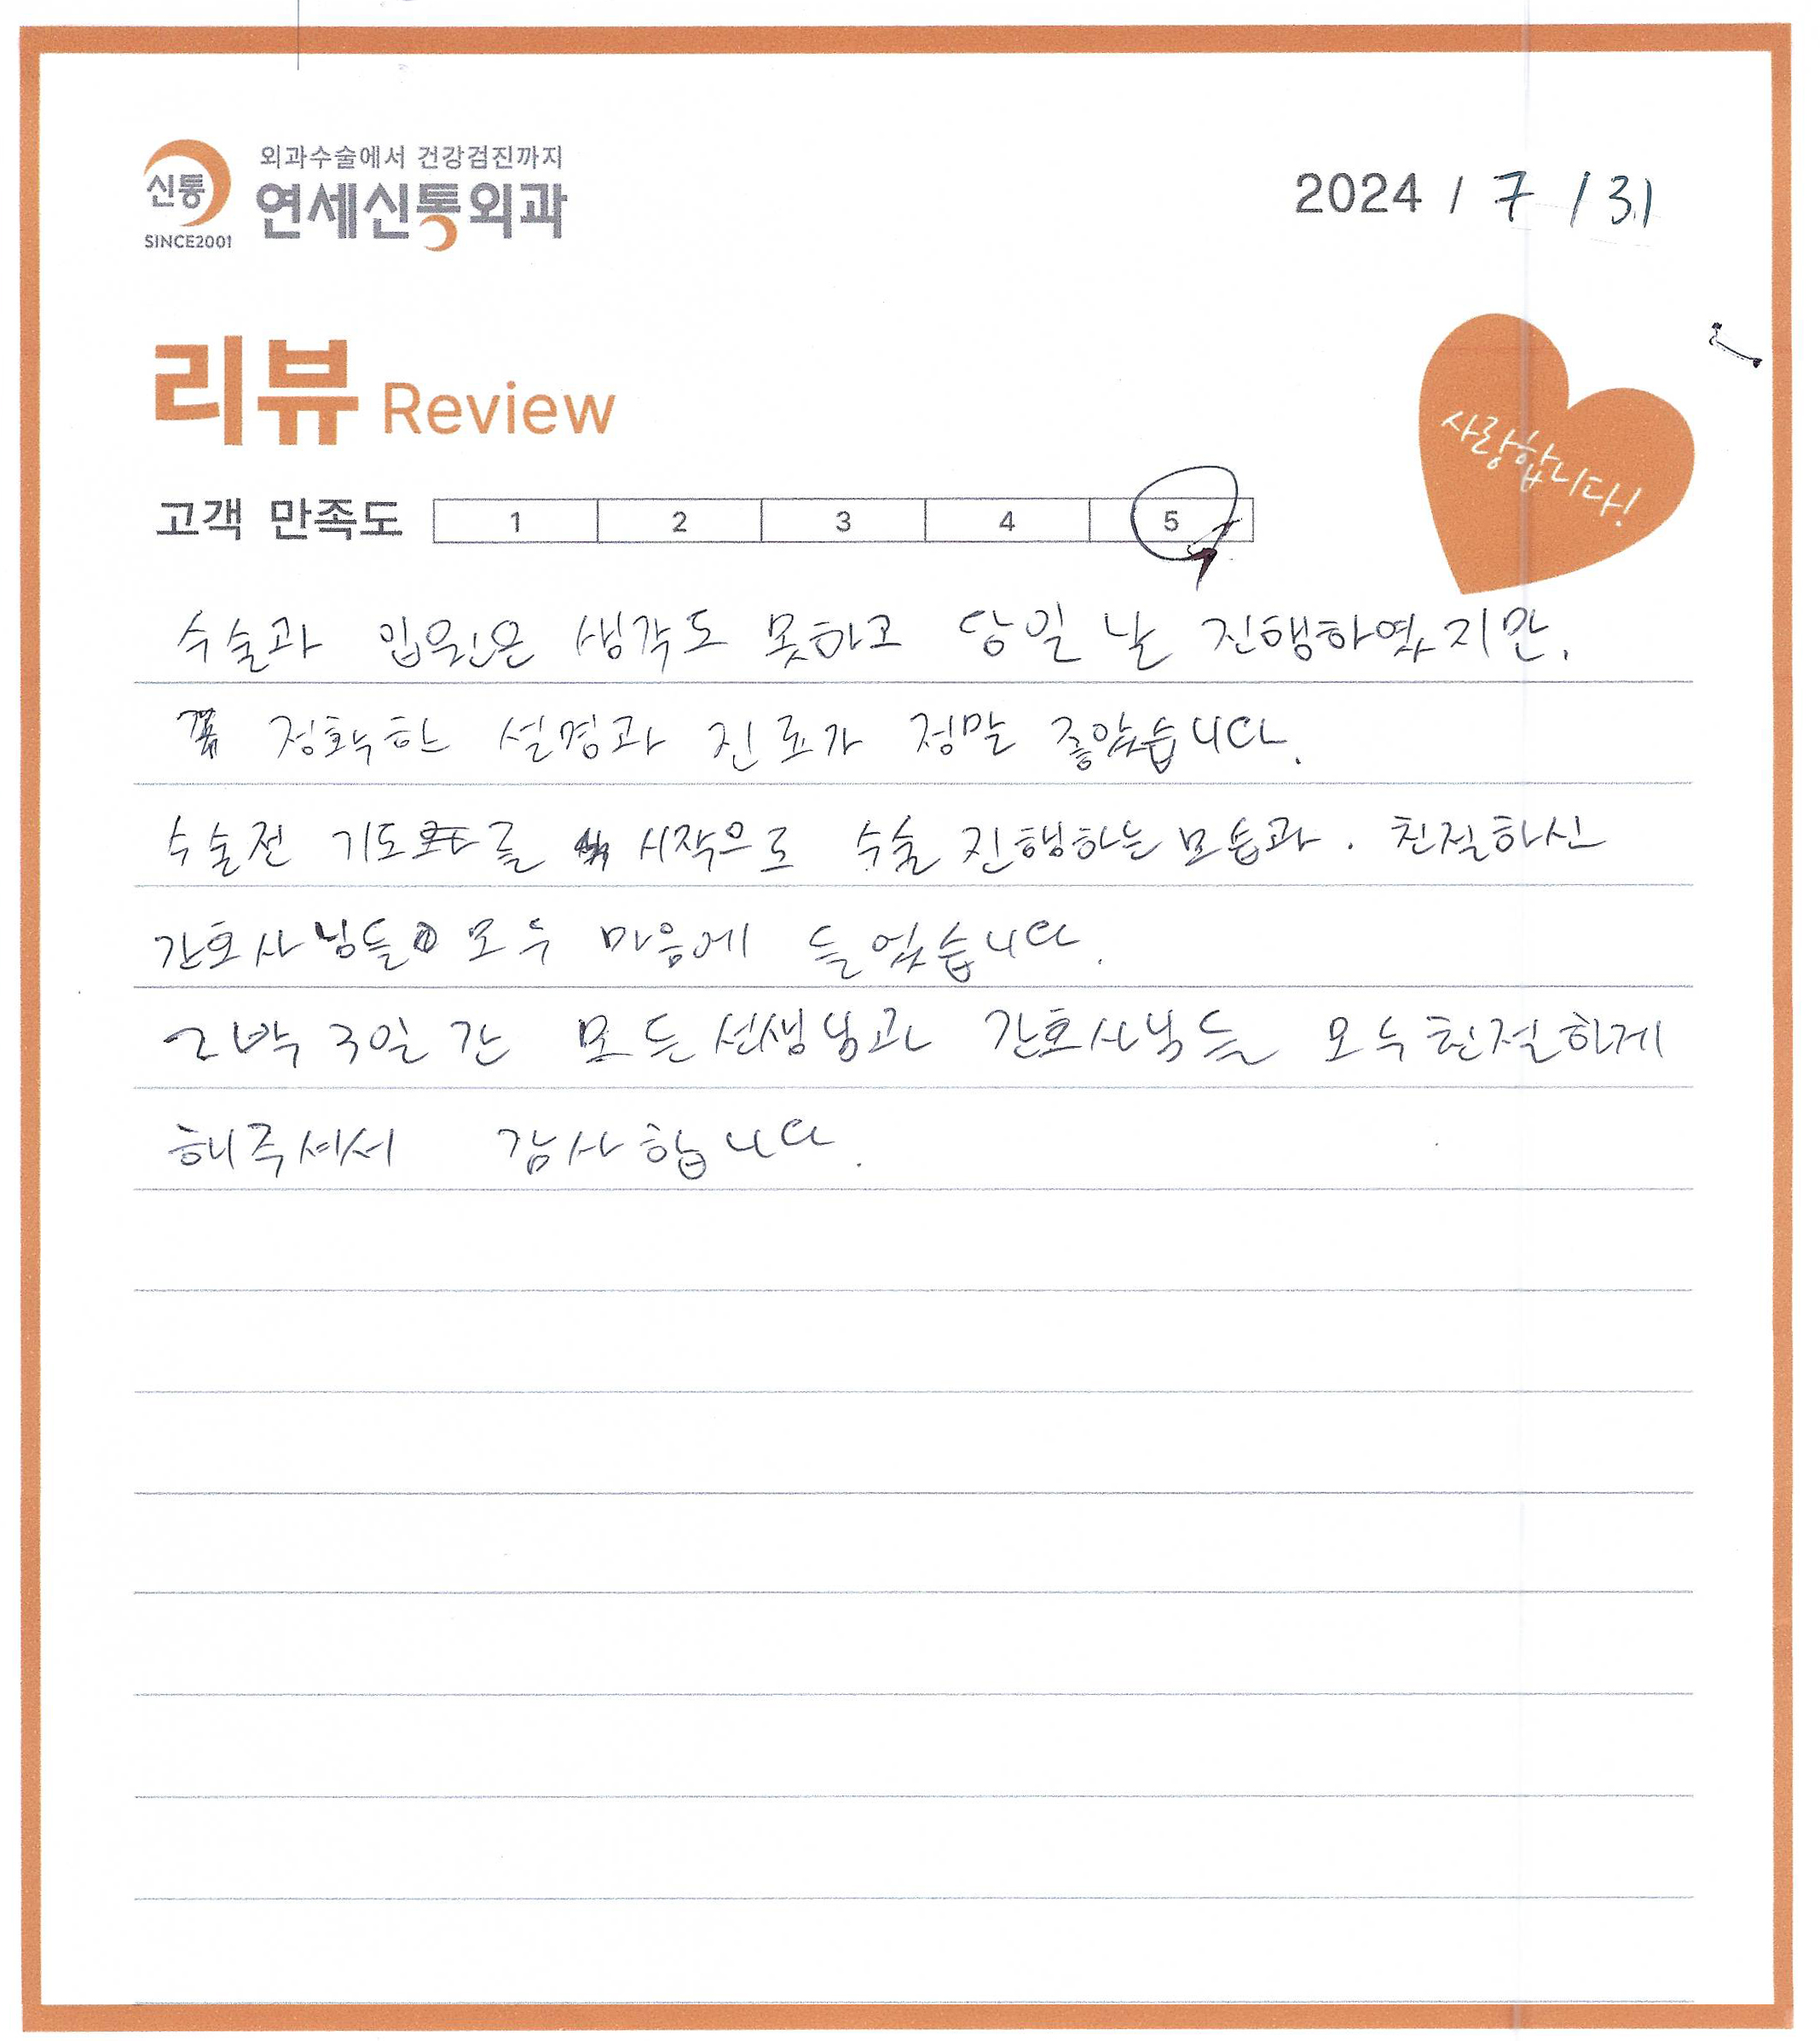 외과수술에서 건강검진까지
신통 연세신통외과
SINCE2001
2024 / 7 / 31
리뷰 Review
사랑합니다!
고객 만족도 1 2 3 4 5
수술과 입원은 생각도 못하고 당일 날 진행하였지만,
정확한 설명과 진료가 정말 좋았습니다.
수술전 기도를 시작으로 수술 진행하는 모습과. 친절하신
간호사님들 모두 마음에 들었습니다.
2박 3일간 모든 선생님과 간호사님들 모두 친절하게
해주셔서 감사합니다.